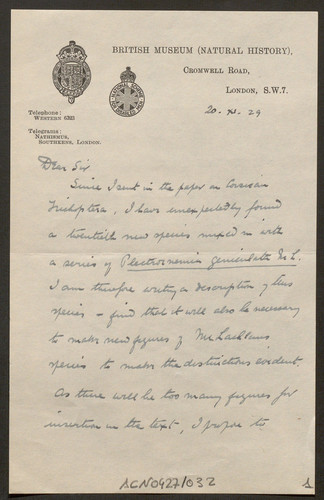 BRITISH MUSEUM (NATURAL HISTORY),
CROMWELL ROAD,
LONDON, S.W.7.
Telephone:
WESTERN 6323
Telegrams:
NATHISMUS,
SOUTHKENS, LONDON.
20. XI. 29
Dear Sir
Since I sent in the paper on Corsican
Trichoptera, I have unexpectedly found
a twentieth new species mixed in with
a series of Plectrocnemia geniculata McL.
I am therefore writing a description of this
species - find that it will also be necessary
to make new figures of McLachlan's
species to make the distinctions evident.
As there will be too many figures for
insertion in the text, I propose to
ACN0427/032